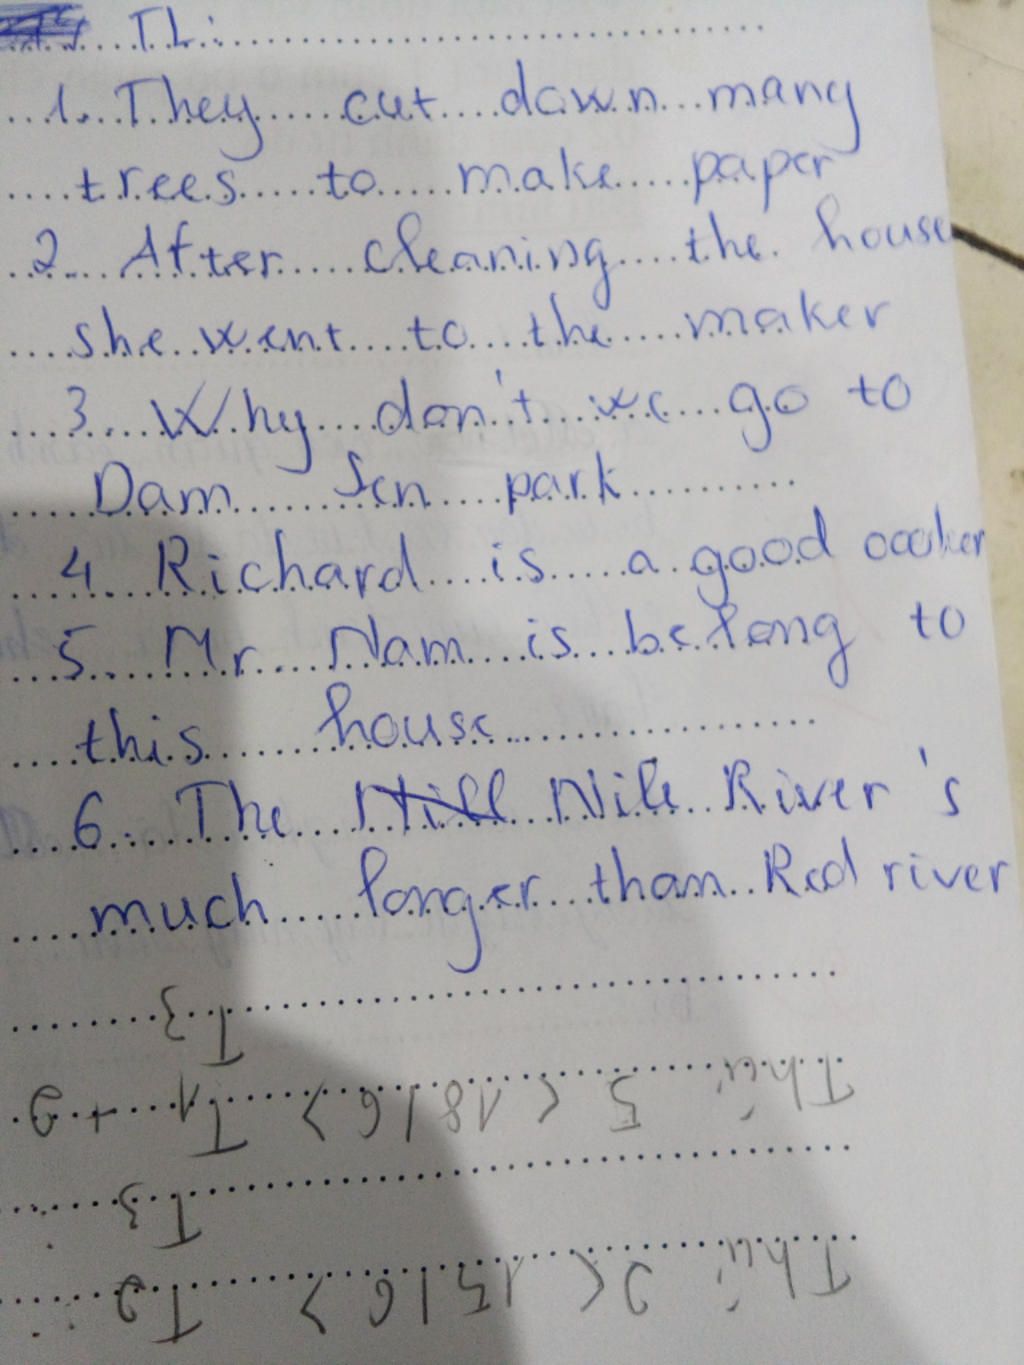 TL:
1. They cut down many
trees to make paper
2. After cleaning the house
she went to the maker
3. Why don't we go to
Dam Sen park
4. Richard is a good cooker
5. Mr. Nam is belong to
this house
6. The Nile River's
much longer than Red river
Thứ 2 <15/6> T2
T3
Thứ 5 <18/6> T1 + 2
T3